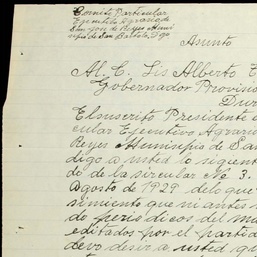 Comité Particular
Ejecutibo Agrario de
San José de Reyes Muni
sipio de San Bartolo, Dgo
Asunto
Al. C. Lis Alberto
Gobernador Provino
Dur
El suscrito Presidente
cular Ejecutivo Agrari
Reyes Munisipio de San
digo a usted lo sigient
do de la sircular No 3.
agosto de 1929 de lo que
simiento que ni antes n
do periodicos del m
editados por el partid
devo desir a usted qu